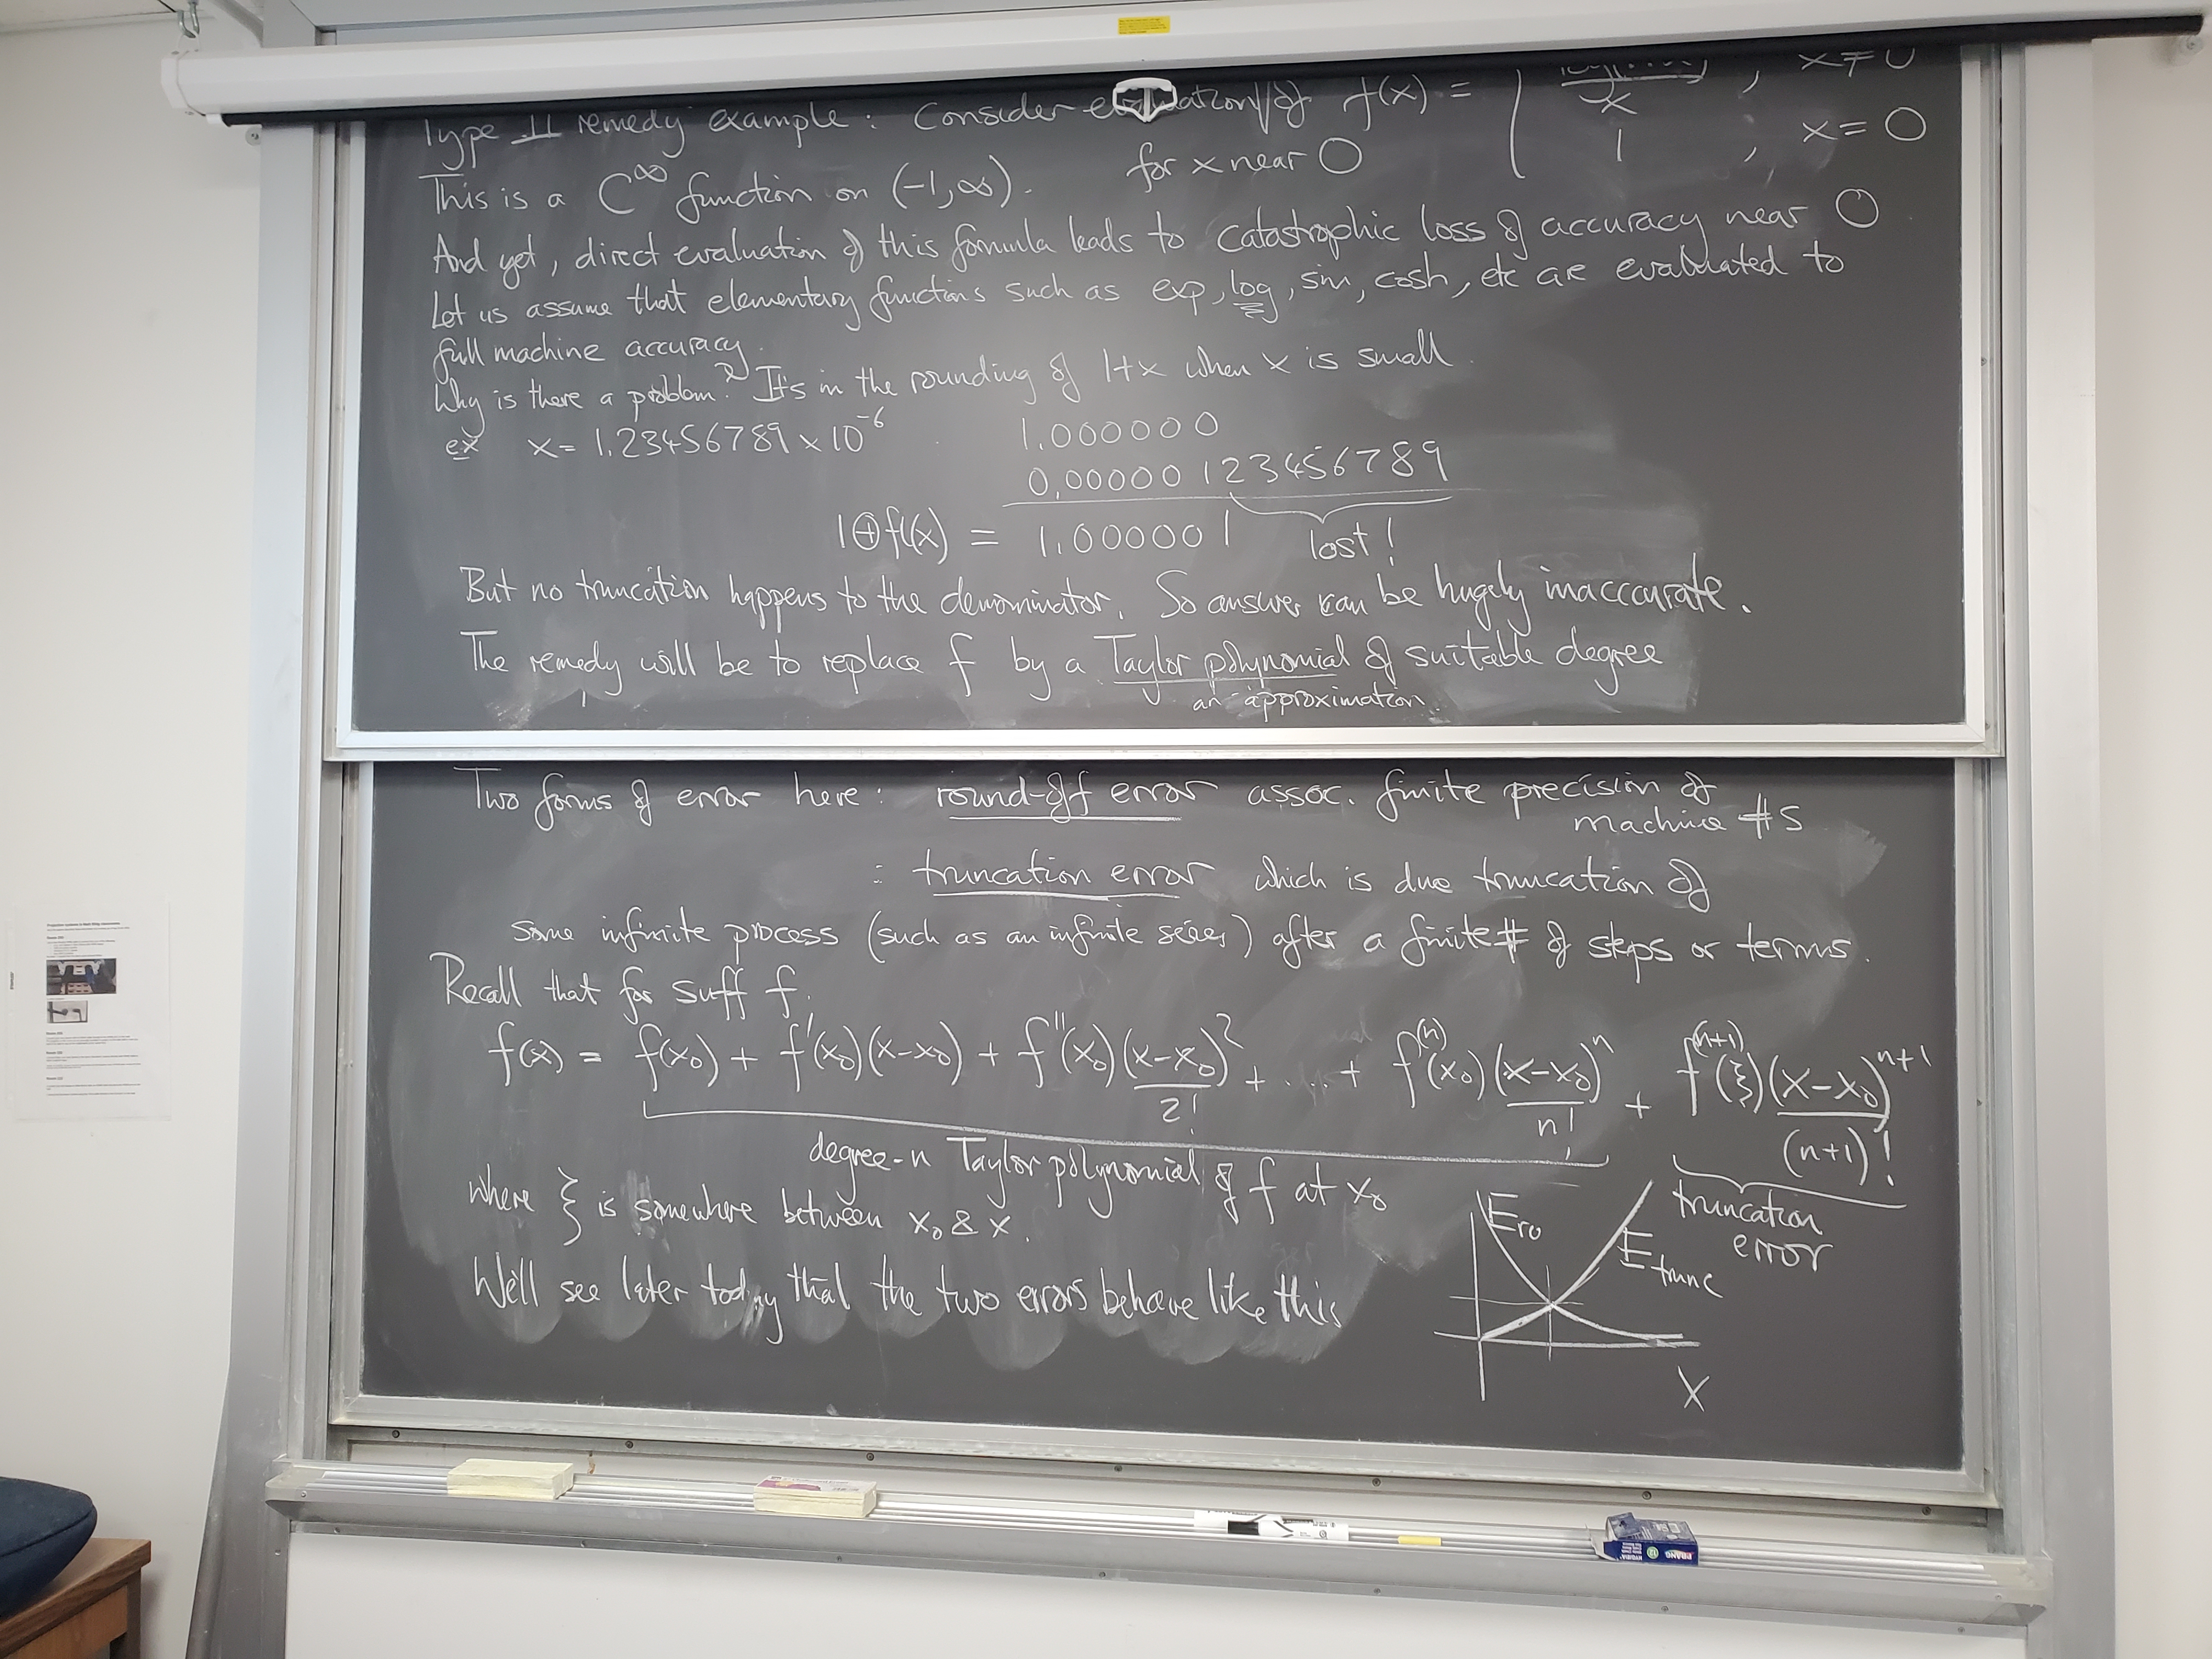 Type II remedy example : Consider evaluation of f(x) = { x , x≠0
1 , x=0
This is a C^∞ function on (-1,∞). for x near 0
And yet, direct evaluation of this formula leads to catastrophic loss of accuracy near 0
Let us assume that elementary functions such as exp, log, sin, cosh, etc are evaluated to
full machine accuracy.
Why is there a problem? It's in the rounding of 1+x when x is small.
ex x = 1.23456789 × 10^-6 1.000000
0.00000123456789
1⊕fl(x) = 1.000001 lost!
But no truncation happens to the denominator. So answer can be hugely inaccurate.
The remedy will be to replace f by a Taylor polynomial of suitable degree
an approximation.
Two forms of error here : round-off error assoc. finite precision of
machine #s
: truncation error which is due truncation of
some infinite process (such as an infinite series) after a finite # of steps or terms.
Recall that for suff f.
f(x) = f(x₀) + f'(x₀)(x-x₀) + f''(x₀)(x-x₀)²/2! + .... + f^(n)(x₀)(x-x₀)^n/n! + f^(n+1)(ξ)(x-x₀)^(n+1)/(n+1)!
degree-n Taylor polynomial of f at x₀
truncation error
where ξ is somewhere between x₀ & x.
We'll see later today that the two errors behave like this
E_ro
E_trunc
x
PRANG